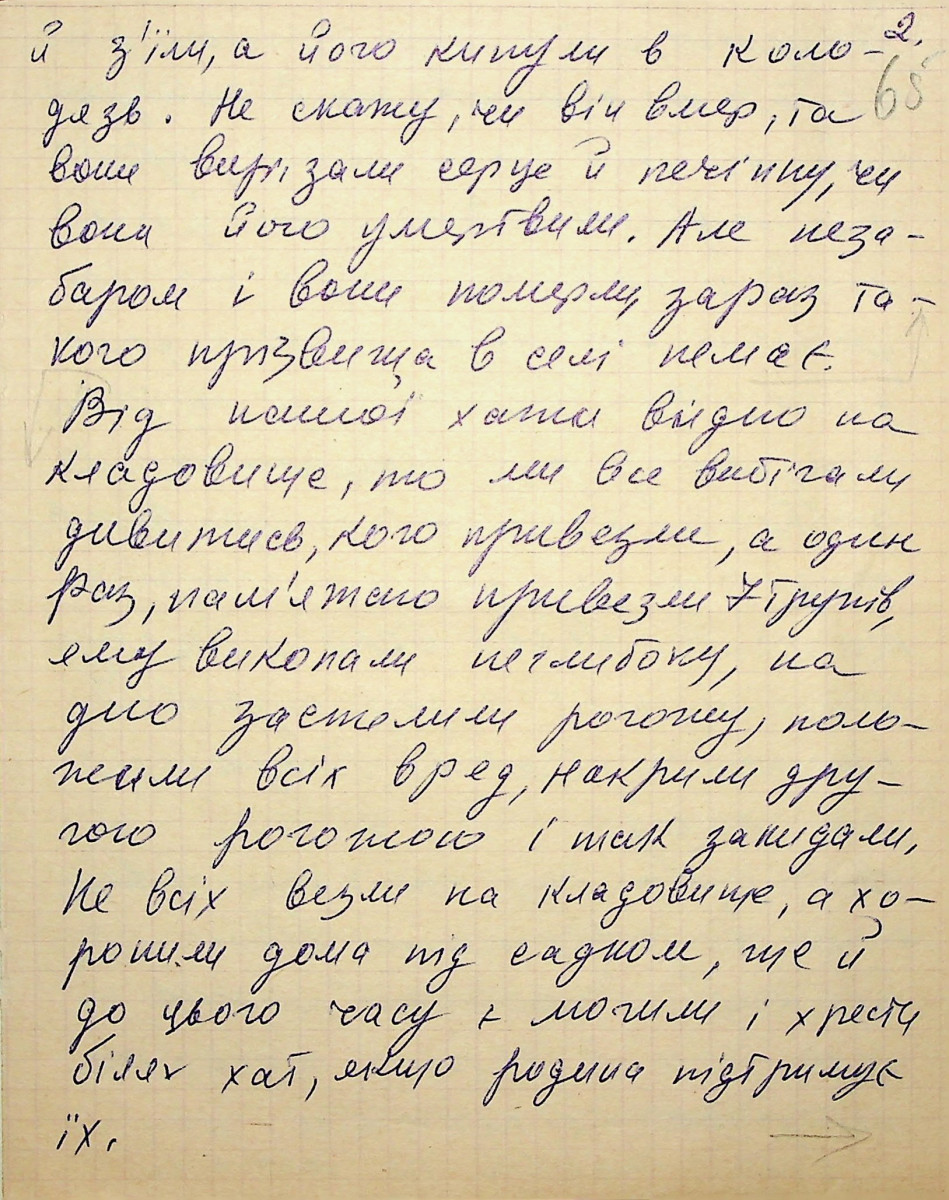 2.
65
й з'їли, а його кинули в коло-
дязь. Не скажу, чи він вмер, та
вони вирізали серце й печінку, чи
вони його умертвили. Але неза-
баром і вони померли, зараз та-
кого прізвища в селі немає.
Від нашої хати видно на
кладовище, то ми все вибігали
дивитись, кого привезли, а один
раз, пам'ятаю привезли 7 трупів,
яму викопали неглибоку, на
дно застелили рогожу, поло-
жили всіх вряд, накрили дру-
гою рогожою і так закидали,
Не всіх везли на кладовище, а хо-
ронили дома під садком, ще й
до цього часу є могили і хрести
біля хат, якщо родина підтримує
їх.